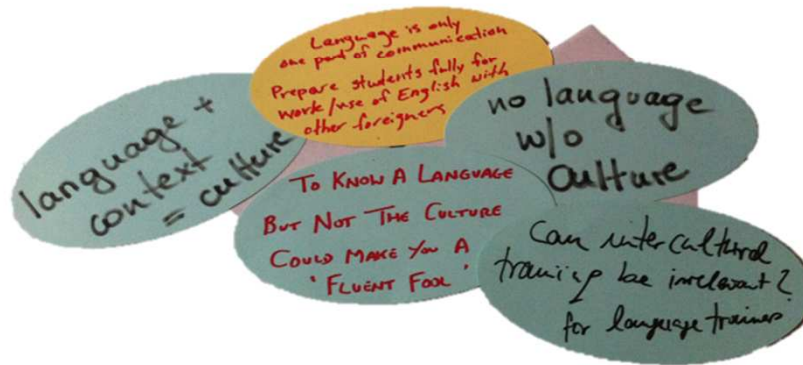 Language is only
one part of communication
Prepare students fully for
work/use of English with
other foreigners
language +
context
= culture
no language
w/o
culture
TO KNOW A LANGUAGE
BUT NOT THE CULTURE
COULD MAKE YOU A
'FLUENT FOOL'
Can intercultural
training be irrelevant?
for language trainers